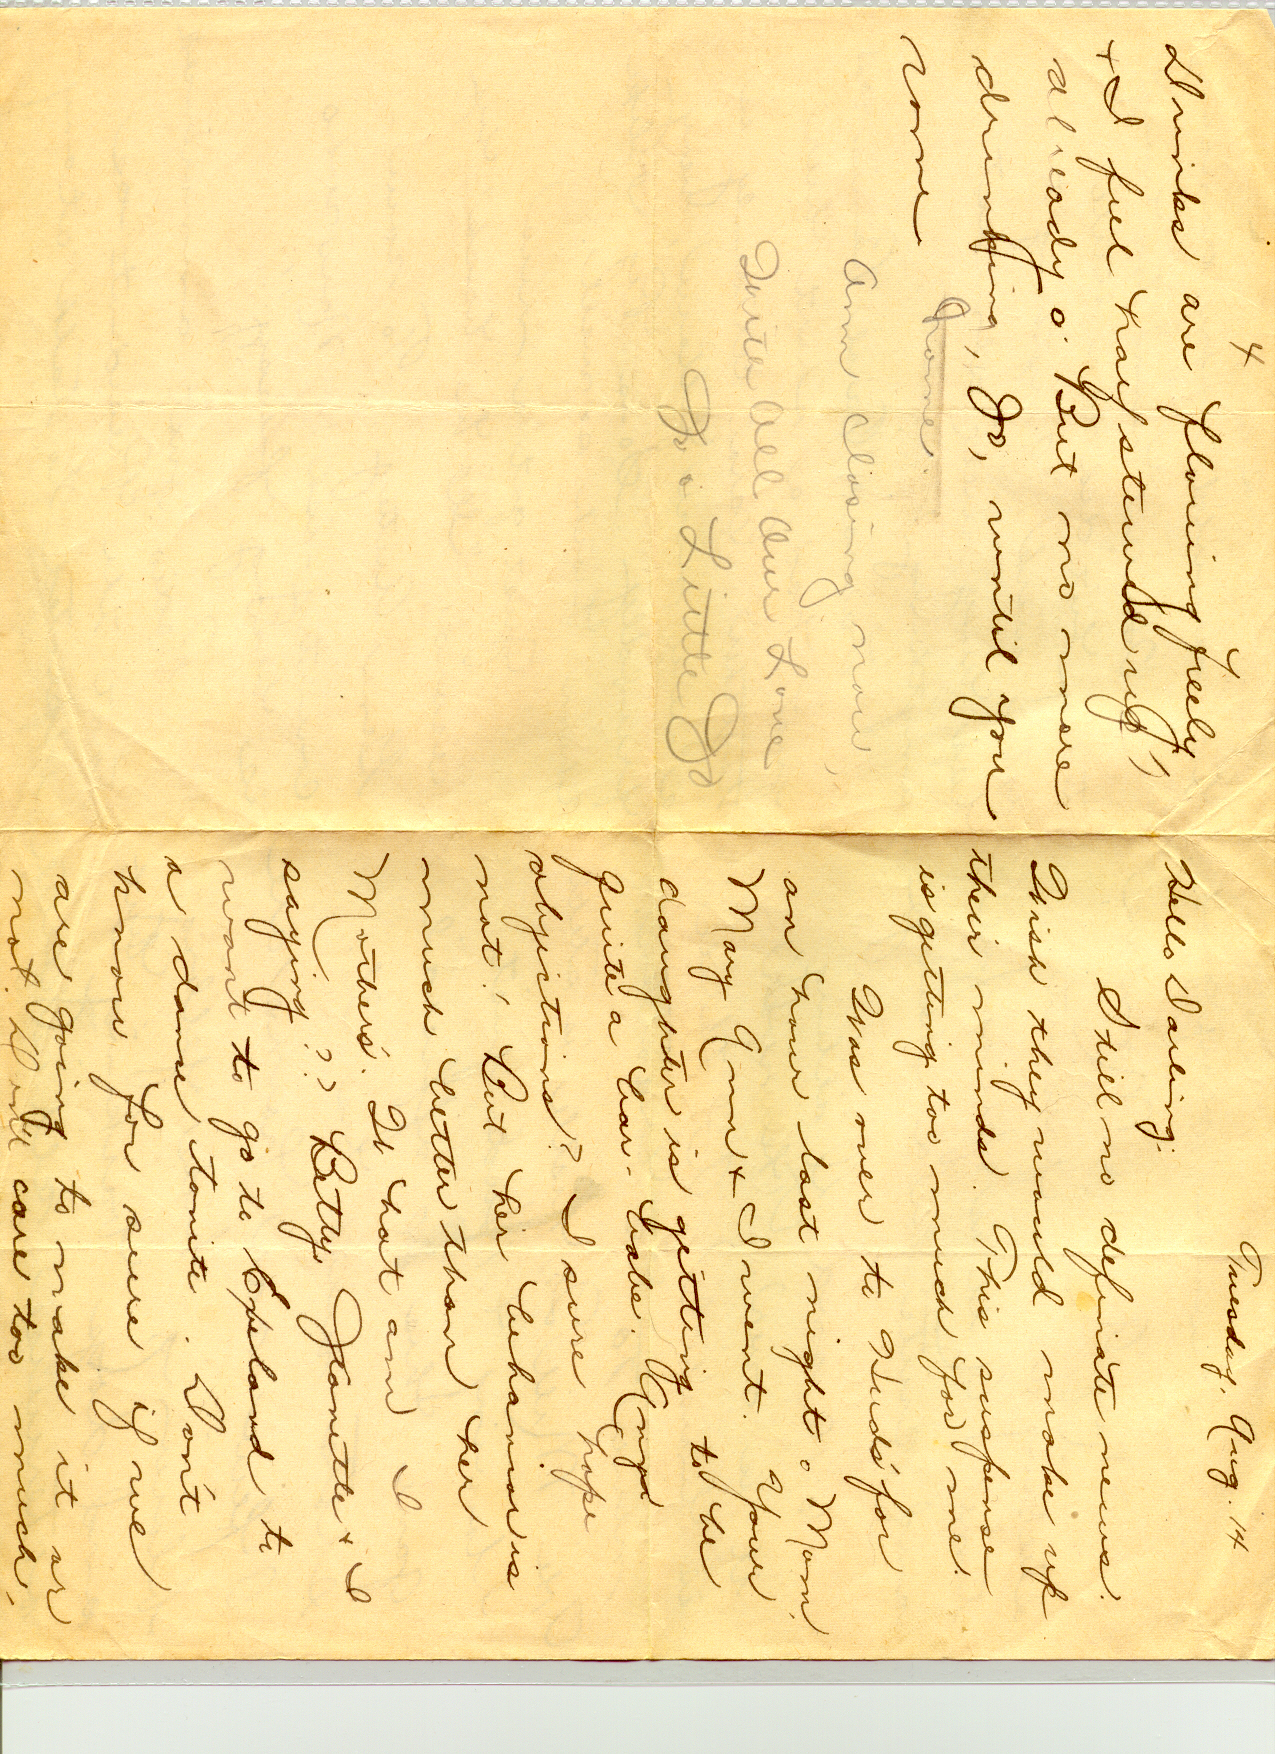 4
Drinks are flowing freely
+ I feel half stewed up,
already. But no more
drinking, Jo, until you
come
home.
Am closing now,
With all our Love
Jo & Little Jo
Tuesday, Aug. 14
Hello Darling:
Still no definate news.
Wish they would make up
their minds. This suspense
is getting too much for me.
Was over to Tuds' for
an hour last night. Mom,
Mary Ann + I went. Your
daughter is getting to be
quite a bar-babe. Any
objections? I sure hope
not! But her behavior is
much better than her
Mother's. What am I
saying?? Betty, Jeanette + I
want to go to Upland to
a dance tonite. Don't
know for sure if we
are going to make it or
not. Don't care too much,